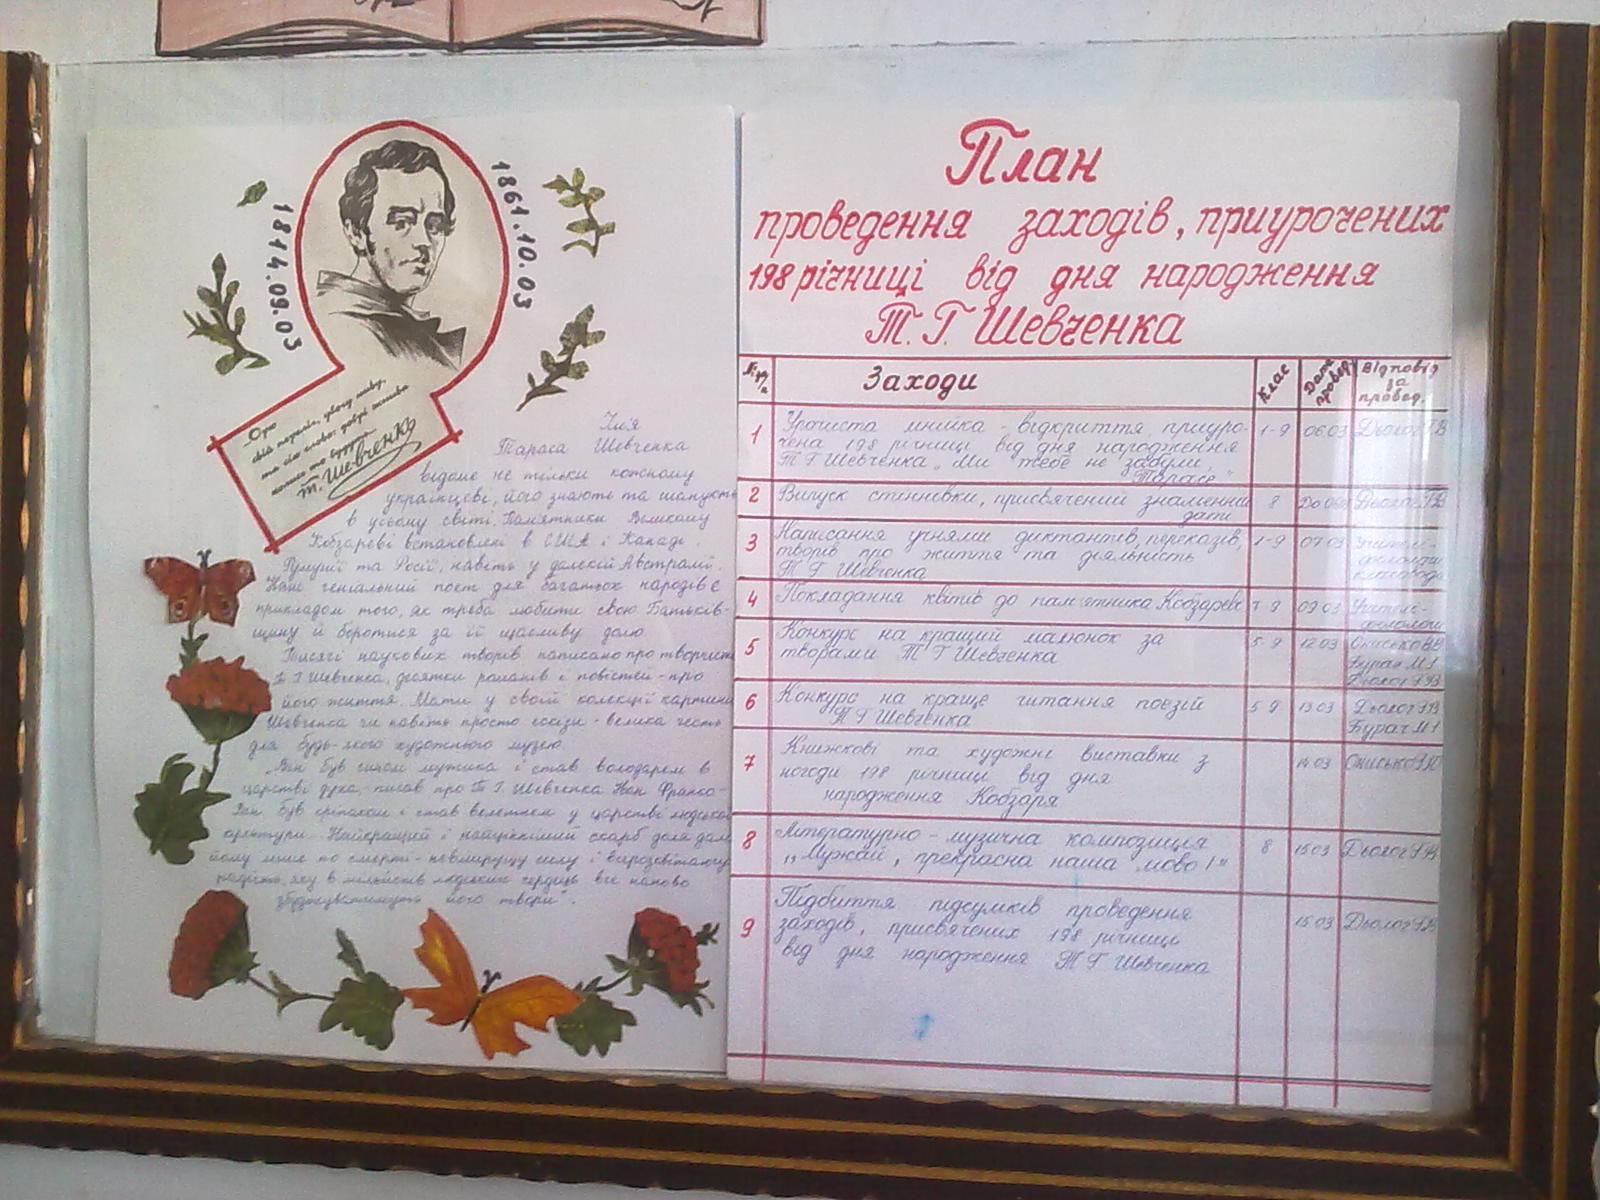 1814.09.03
1861.10.03
Орю
свій переліг, убогу ниву,
та сію слово: добрі жнива
колись то будуть
Т. Шевченко
Ім'я
Тараса Шевченка
відоме не тільки кожному
українцеві, його знають та шанують
в усьому світі. Пам'ятники Великому
Кобзареві встановлені в США і Канаді,
Румунії та Росії, навіть у далекій Австралії.
Наш геніальний поет для багатьох народів є
прикладом того, як треба любити свою Батьків-
щину й боротися за її щасливу долю.
Тисячі наукових творів написано про творчість
Т Г Шевченка, десятки романів і повістей - про
його життя. Мати у своїй колекції картини
Шевченка чи навіть просто ескізи - велика честь
для будь-якого художнього музею.
„Він був сином мужика і став володарем в
царстві духа, - писав про Т. Г. Шевченка Іван Франко -
Він був кріпаком і став велетнем у царстві людської
культури. Найкращий і найцінніший скарб доля дала
йому лише по смерті - невмирущу силу і всерозквітаючу
радість, яку в мільйонів людських сердець все наново
збуджуватимуть його твори".
План
проведення заходів, приурочених
198 річниці від дня народження
Т. Г. Шевченка
№ п/п Заходи Клас Дата провед. Відповід за провед.
1 Урочиста лінійка - відкриття, приуро- 1-9 06.03 Дьолог
чена 198 річниці від дня народження
Т Г Шевченка „Ми тебе не забули,
Тарасе"
2 Випуск стіннівки, присвяченій знаменній 8 До Дьолог
даті
3 Написання учнями диктантів, переказів, 1-9 07.03 Учителі-
творів про життя та діяльність філологи
Т Г Шевченка
4 Покладання квітів до пам'ятника Кобзареві 9 09 03 Учителі-
філологи
5 Конкурс на кращий малюнок за 5-9 12 03 Ониськo
творами Т Г Шевченка Бурач М І
Дьолог
6 Конкурс на краще читання поезій 5 9 13.03 Дьолог
Т Г Шевченка Бурач М І
7 Книжкові та художні виставки з 14 03 Ониськo
нагоди 198 річниці від дня
народження Кобзаря
8 Літературно - музична композиція 8 15.03 Дьолог
„Мужай, прекрасна наша мово!"
9 Підбиття підсумків проведення 15 03 Дьолог
заходів, присвячених 198 річниці
від дня народження Т Г Шевченка